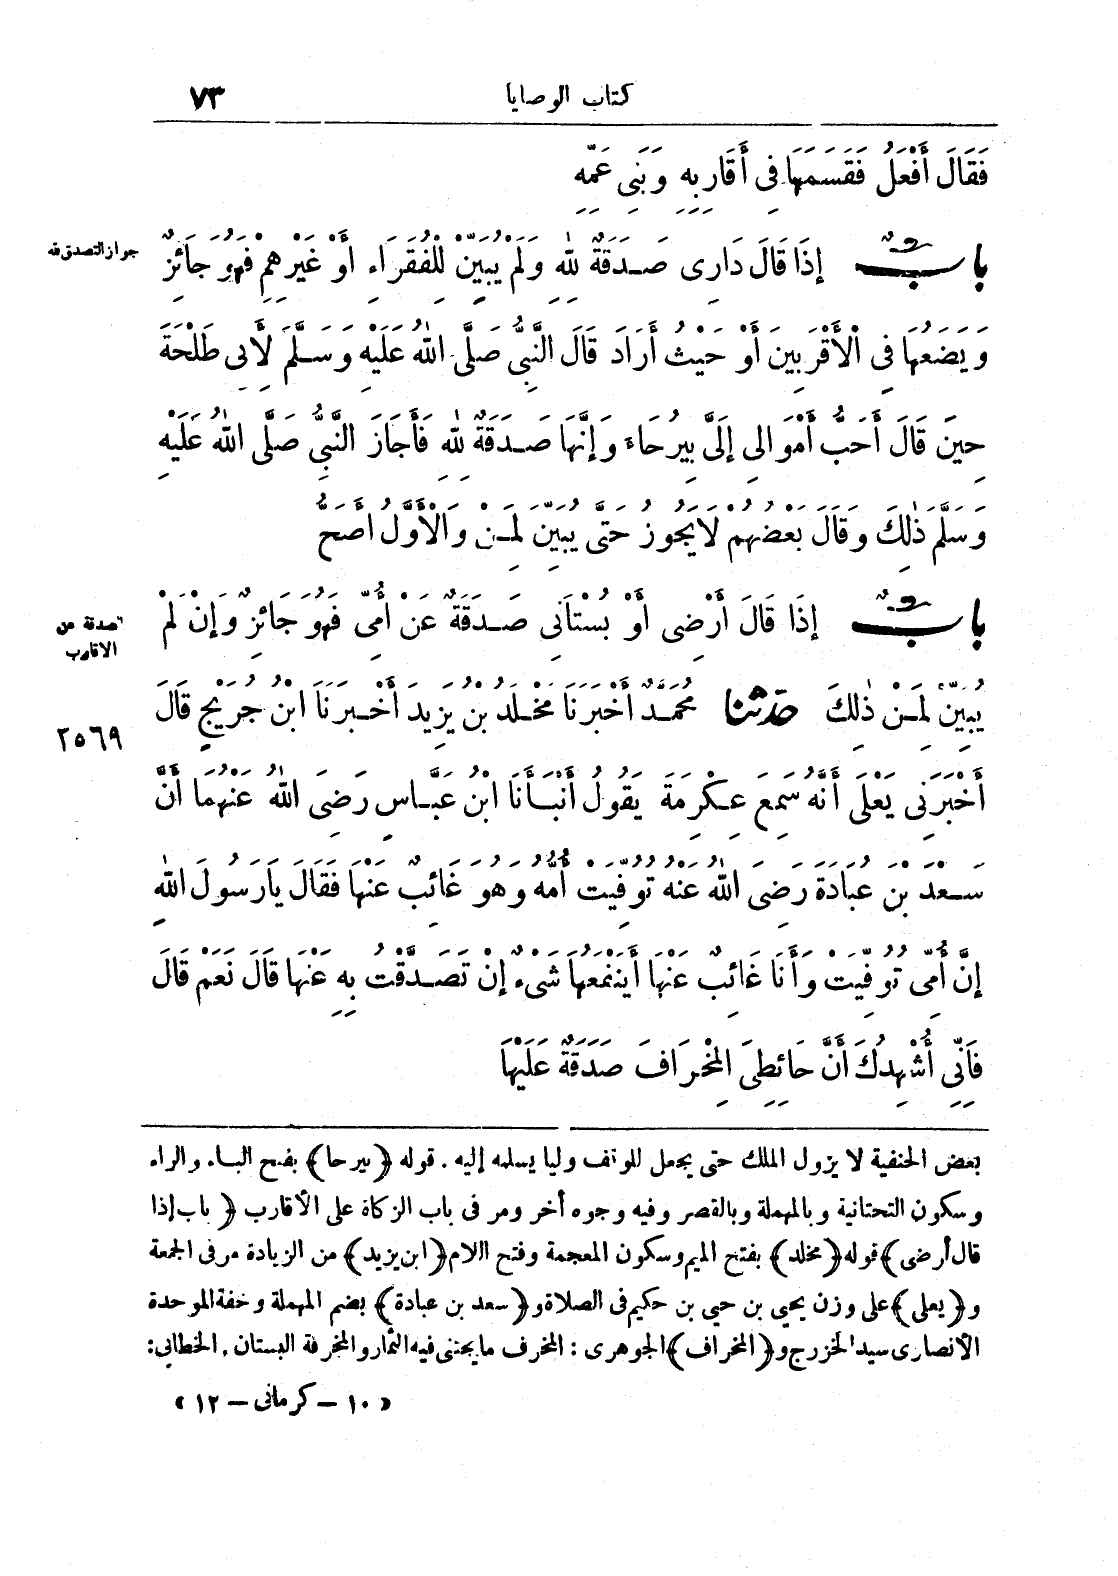 كتاب الوصايا ٧٣
فَقَالَ أَفْعَلُ فَقَسَمَهَا فِي أَقَارِبِهِ وَبَنِي عَمِّهِ
بابٌ إِذَا قَالَ دَارِي صَدَقَةٌ لِلّٰهِ وَلَمْ يُبَيِّنْ لِلْفُقَرَاءِ أَوْ غَيْرِهِمْ فَهُوَ جَائِزٌ
جواز التصدق
وَيَضَعُهَا فِي الْأَقْرَبِينَ أَوْ حَيْثُ أَرَادَ قَالَ النَّبِيُّ صَلَّى اللّٰهُ عَلَيْهِ وَسَلَّمَ لِأَبِي طَلْحَةَ
حِينَ قَالَ أَحَبُّ أَمْوَالِي إِلَىَّ بِيرُحَاءَ وَإِنَّهَا صَدَقَةٌ لِلّٰهِ فَأَجَازَ النَّبِيُّ صَلَّى اللّٰهُ عَلَيْهِ
وَسَلَّمَ ذٰلِكَ وَقَالَ بَعْضُهُمْ لَا يَجُوزُ حَتَّى يُبَيِّنَ لِمَنْ وَالْأَوَّلُ أَصَحُّ
بابٌ إِذَا قَالَ أَرْضِي أَوْ بُسْتَانِي صَدَقَةٌ عَنْ أُمِّي فَهُوَ جَائِزٌ وَإِنْ لَمْ
صدقة عن
الاقارب
يُبَيِّنْ لِمَنْ ذٰلِكَ حَدَّثَنَا مُحَمَّدٌ أَخْبَرَنَا مَخْلَدُ بْنُ يَزِيدَ أَخْبَرَنَا ابْنُ جُرَيْجٍ قَالَ
٢٥٦٩
أَخْبَرَنِي يَعْلَى أَنَّهُ سَمِعَ عِكْرِمَةَ يَقُولُ أَنْبَأَنَا ابْنُ عَبَّاسٍ رَضِيَ اللّٰهُ عَنْهُمَا أَنَّ
سَعْدَ بْنَ عُبَادَةَ رَضِيَ اللّٰهُ عَنْهُ تُوُفِّيَتْ أُمُّهُ وَهُوَ غَائِبٌ عَنْهَا فَقَالَ يَا رَسُولَ اللّٰهِ
إِنَّ أُمِّي تُوُفِّيَتْ وَأَنَا غَائِبٌ عَنْهَا أَيَنْفَعُهَا شَيْءٌ إِنْ تَصَدَّقْتُ بِهِ عَنْهَا قَالَ نَعَمْ قَالَ
فَإِنِّي أُشْهِدُكَ أَنَّ حَائِطِيَ الْمِخْرَافَ صَدَقَةٌ عَلَيْهَا
بعض الحنفية لا يزول الملك حتى يجعل للوقف وليا يسلمه إليه . قوله ﴿بيرحا﴾ بفتح الباء والراء
وسكون التحتانية وبالمهملة وبالقصر وفيه وجوه أخر ومر في باب الزكاة على الأقارب ﴿باب إذا
قال أرضي﴾ قوله ﴿مخلد﴾ بفتح الميم وسكون المعجمة وفتح اللام ﴿ابن يزيد﴾ من الزيادة مر في الجمعة
و﴿يعلى﴾ على وزن يحيى بن حيي بن حكيم في الصلاة و﴿سعد بن عبادة﴾ بضم المهملة وخفة الموحدة
الأنصاري سيد الخزرج و﴿المخراف﴾ الجوهري : المخرف ما يجتنى فيه الثمار والمخرفة البستان . الخطابي :
« ١٠ – كرماني – ١٢ »